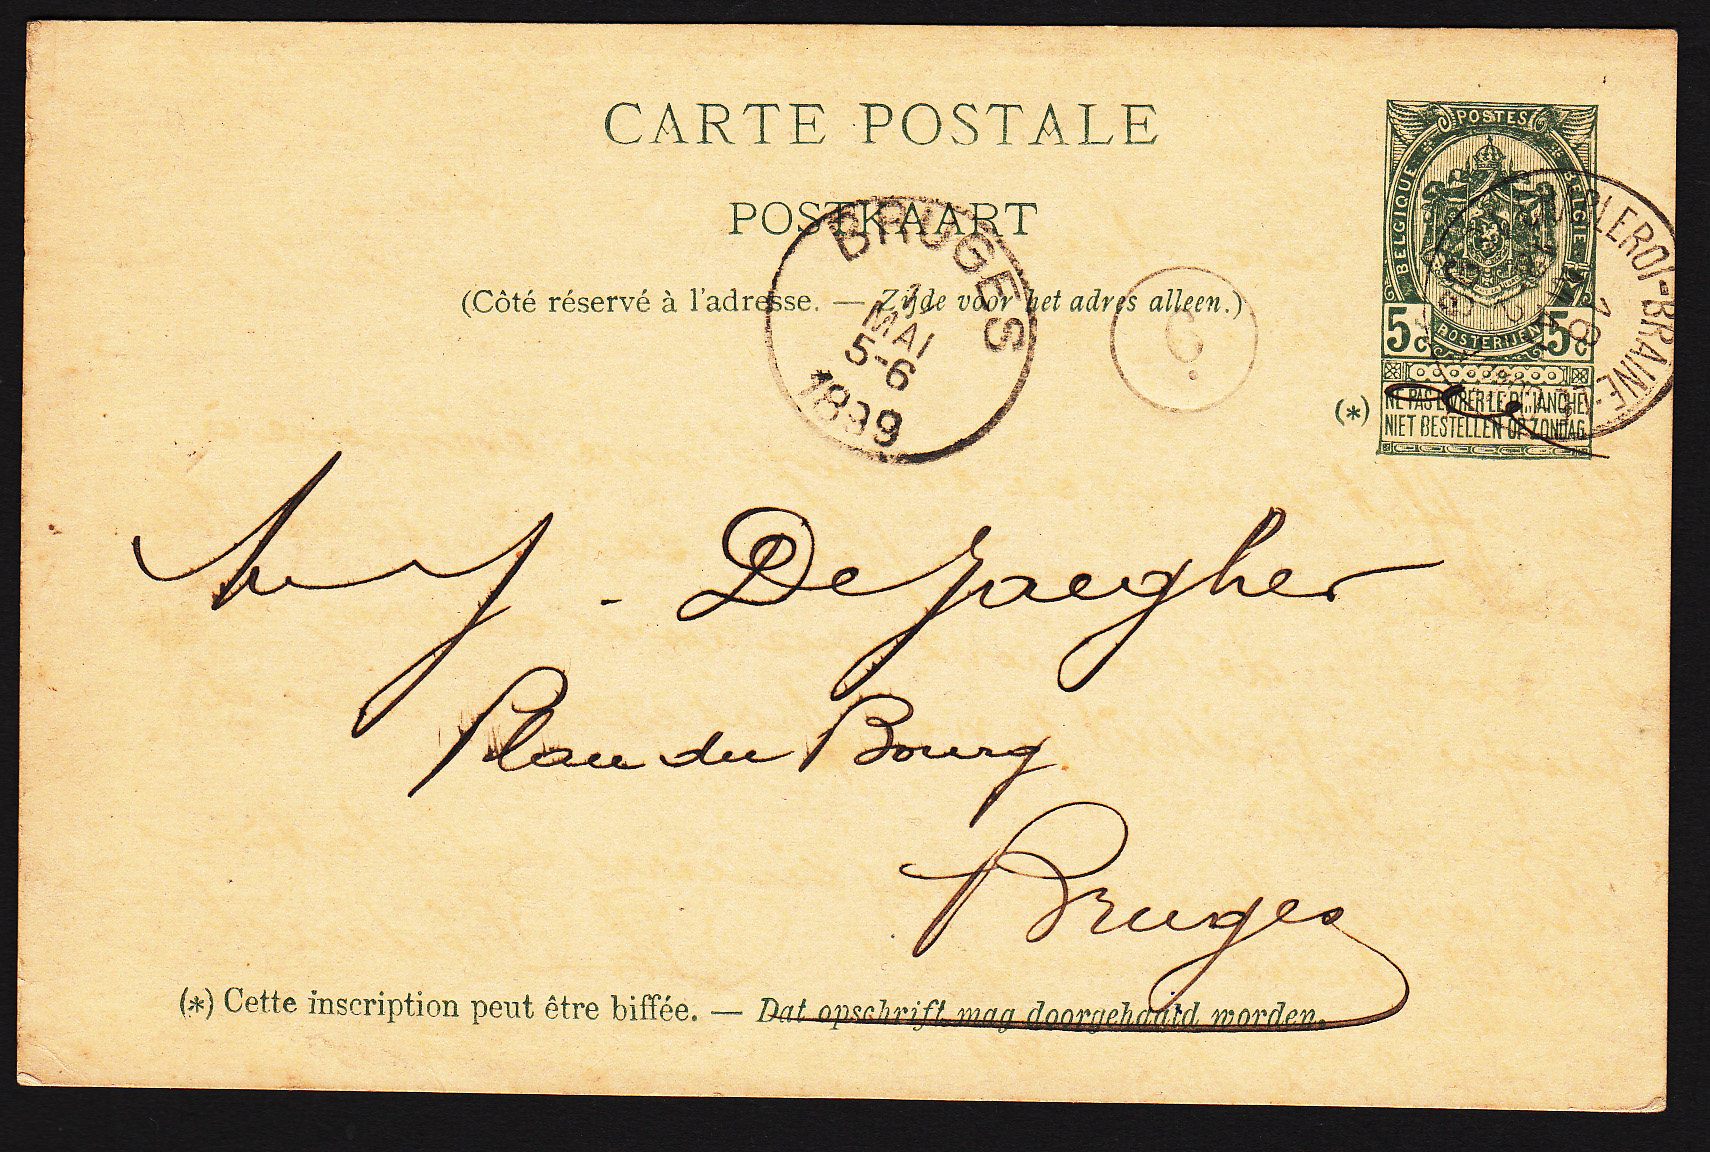 CARTE POSTALE
POSTKAART
(Côté réservé à l'adresse. — Zijde voor het adres alleen.)
BRUGES
1
MAI
5-6
1899
G.
POSTES
BELGIQUE
BELGIE
5c
POSTERIJEN
5c
(*)
NE PAS LIVRER LE DIMANCHE
NIET BESTELLEN OP ZONDAG
LEROI-BRAINE
J. DeJaegher
Place du Bourg
Bruges
(*) Cette inscription peut être biffée. — Dat opschrift mag doorgehaald worden.